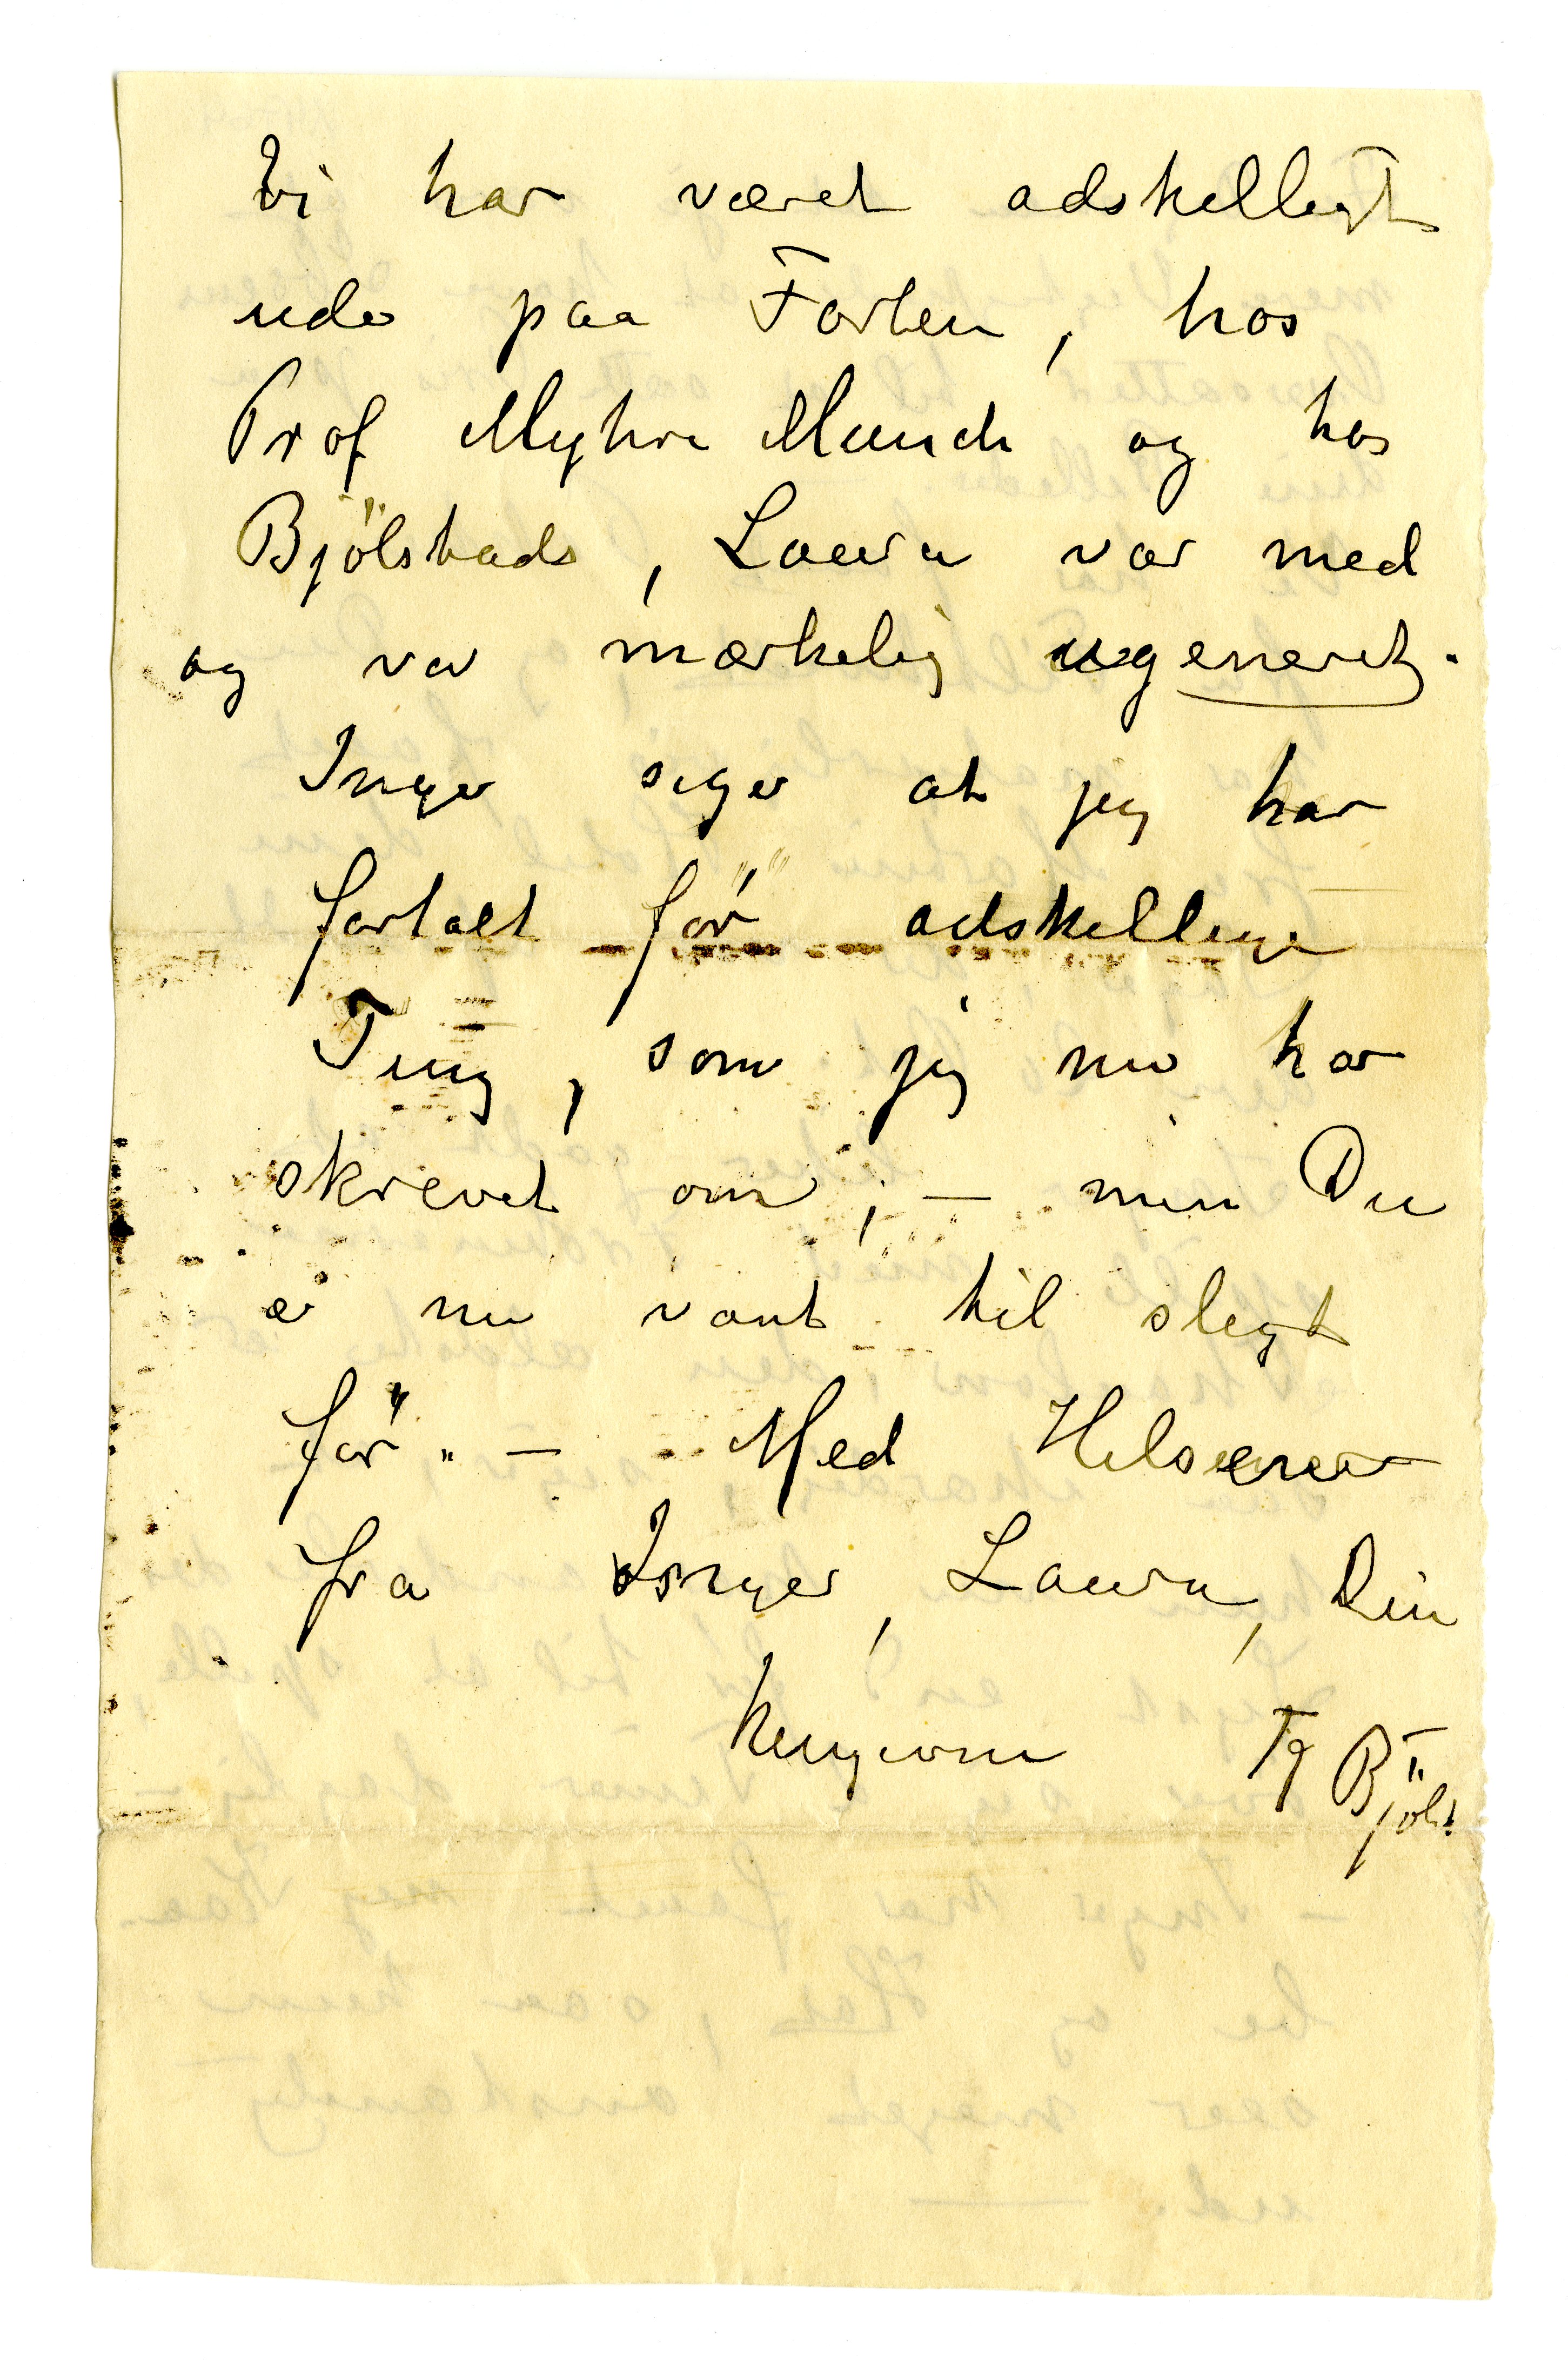 Vi har været adskelligt
ude paa Farten, hos
Prof Myhre Munch og hos
Bjölstads, Laura var med
og var mærkelig ugeneret.
Inger siger at jeg har
fortalt för adskellige
Ting, som jeg nu har
skrevet om; — men Du
er nu vant til sligt
för. — Med Hilsener
fra Inger, Laura, Din
hengivne K Bjöls.